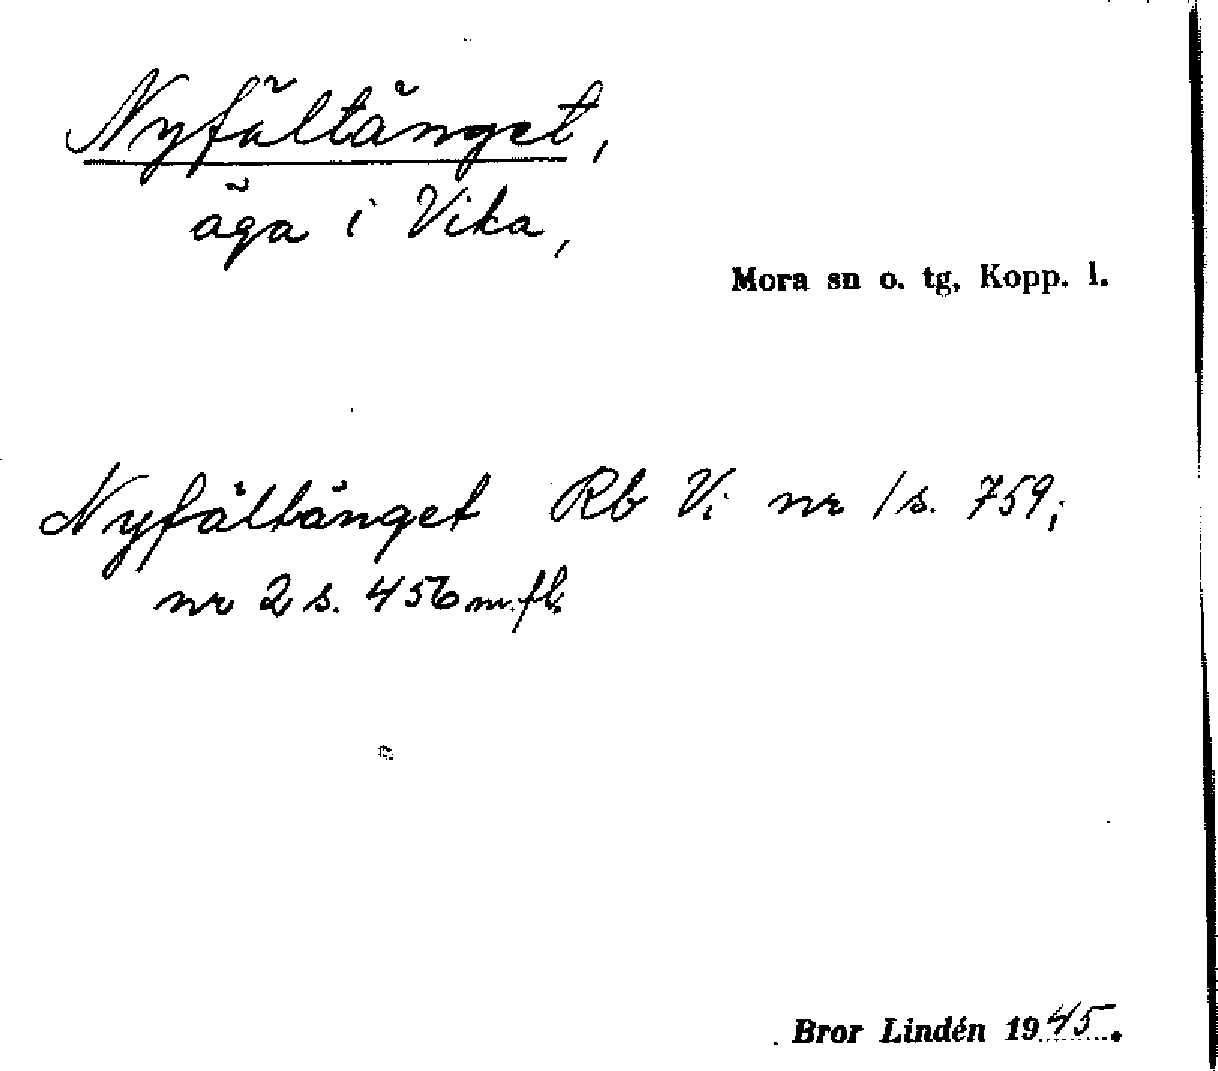 Nyfältänget,
äga i Vika,
Mora sn o. tg, Kopp. l.
Nyfältänget Rb Vi nr 1 s. 759;
nr 2 s. 456 m. fl.
Bror Lindén 1945.